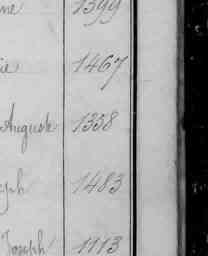 ne 1399
ie 1467
Auguste 1358
eph 1483
Joseph 1113